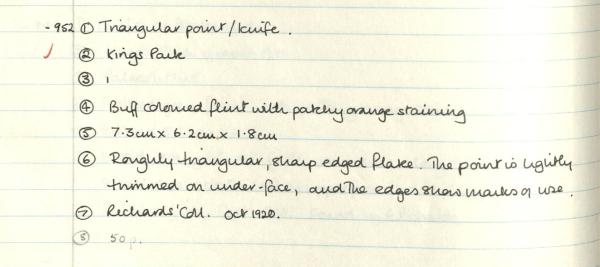 -952 ① Triangular point/knife.
② Kings Park
③ 1
④ Buff coloured flint with patchy orange staining
⑤ 7.3cm x 6.2cm x 1.8cm
⑥ Roughly triangular, sharp edged flake. The point is lightly
trimmed on under-face, and the edges show marks of use.
⑦ Richards' Coll. Oct 1920.
⑧ 50p.